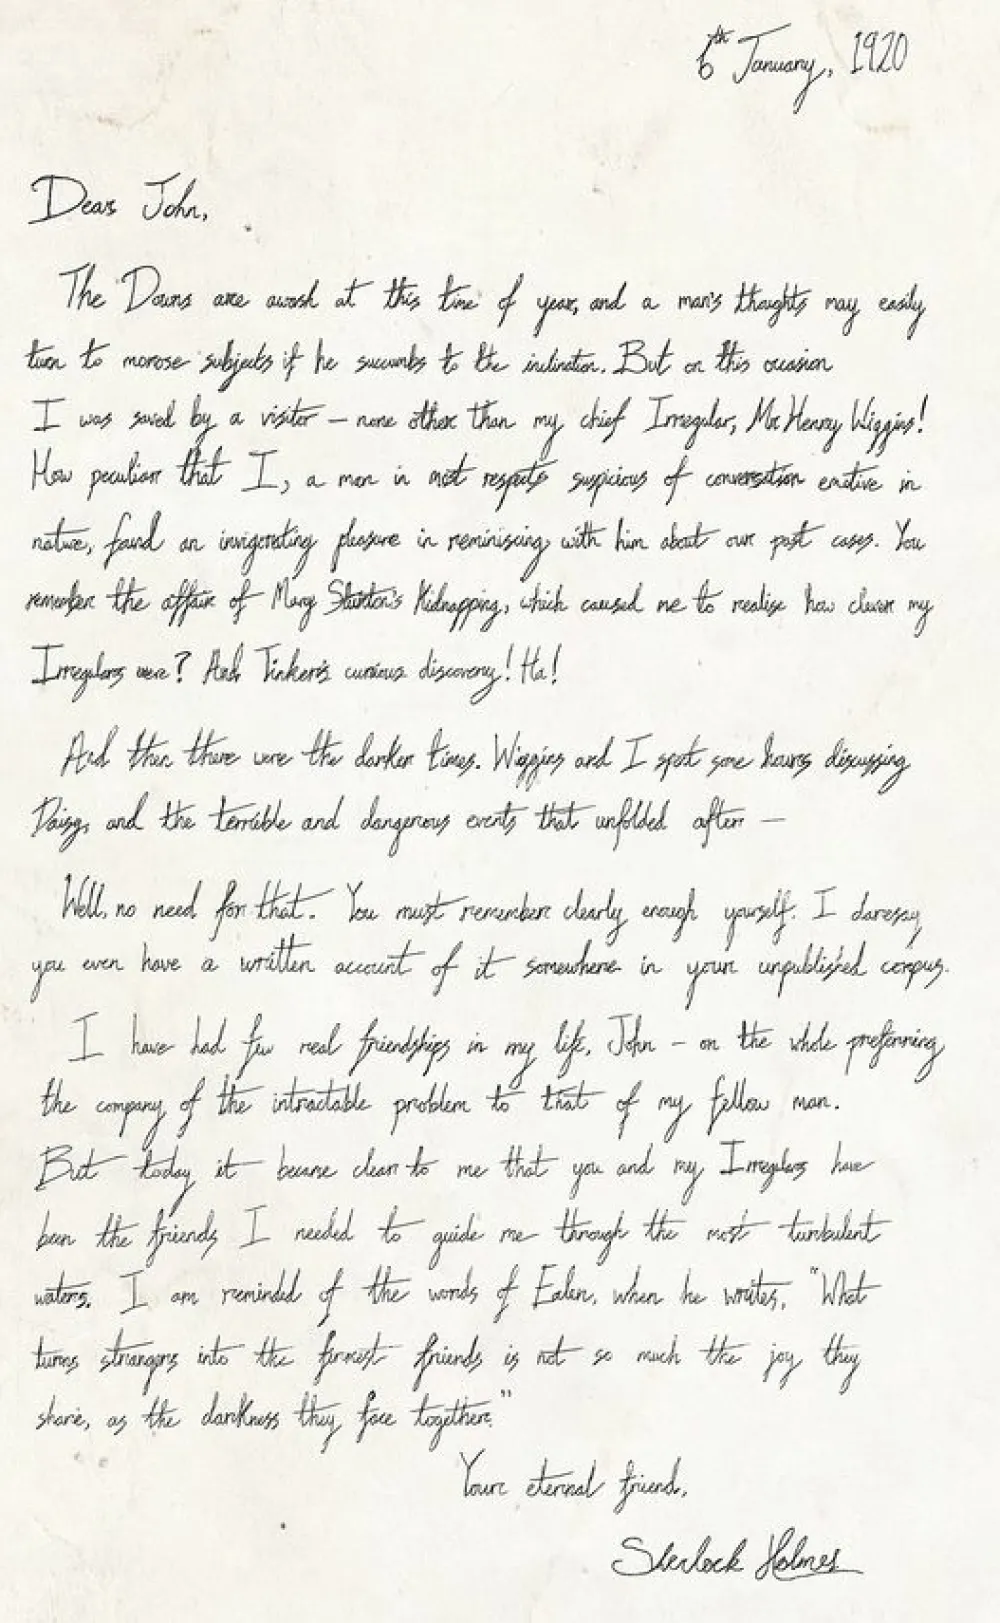 6th January, 1920
Dear John,
The Downs are awash at this time of year, and a man's thoughts may easily
turn to morose subjects if he succumbs to the inclination. But on this occasion
I was saved by a visitor – none other than my chief Irregular, Mr Henry Wiggins!
How peculiar that I, a man in most respects suspicious of conversation emotive in
nature, found an invigorating pleasure in reminiscing with him about our past cases. You
remember the affair of Mary Staunton's Kidnapping, which caused me to realise how clever my
Irregulars were? And Tinker's curious discovery! Ha!
And then there were the darker times. Wiggins and I spent some hours discussing
Daisy, and the terrible and dangerous events that unfolded after –
Well, no need for that. You must remember clearly enough yourself. I daresay
you even have a written account of it somewhere in your unpublished corpus.
I have had few real friendships in my life, John – on the whole preferring
the company of the intractable problem to that of my fellow man.
But today it became clear to me that you and my Irregulars have
been the friends I needed to guide me through the most turbulent
waters. I am reminded of the words of Ealan, when he writes, "What
turns strangers into the firmest friends is not so much the joy they
share, as the darkness they face together."
Your eternal friend,
Sherlock Holmes